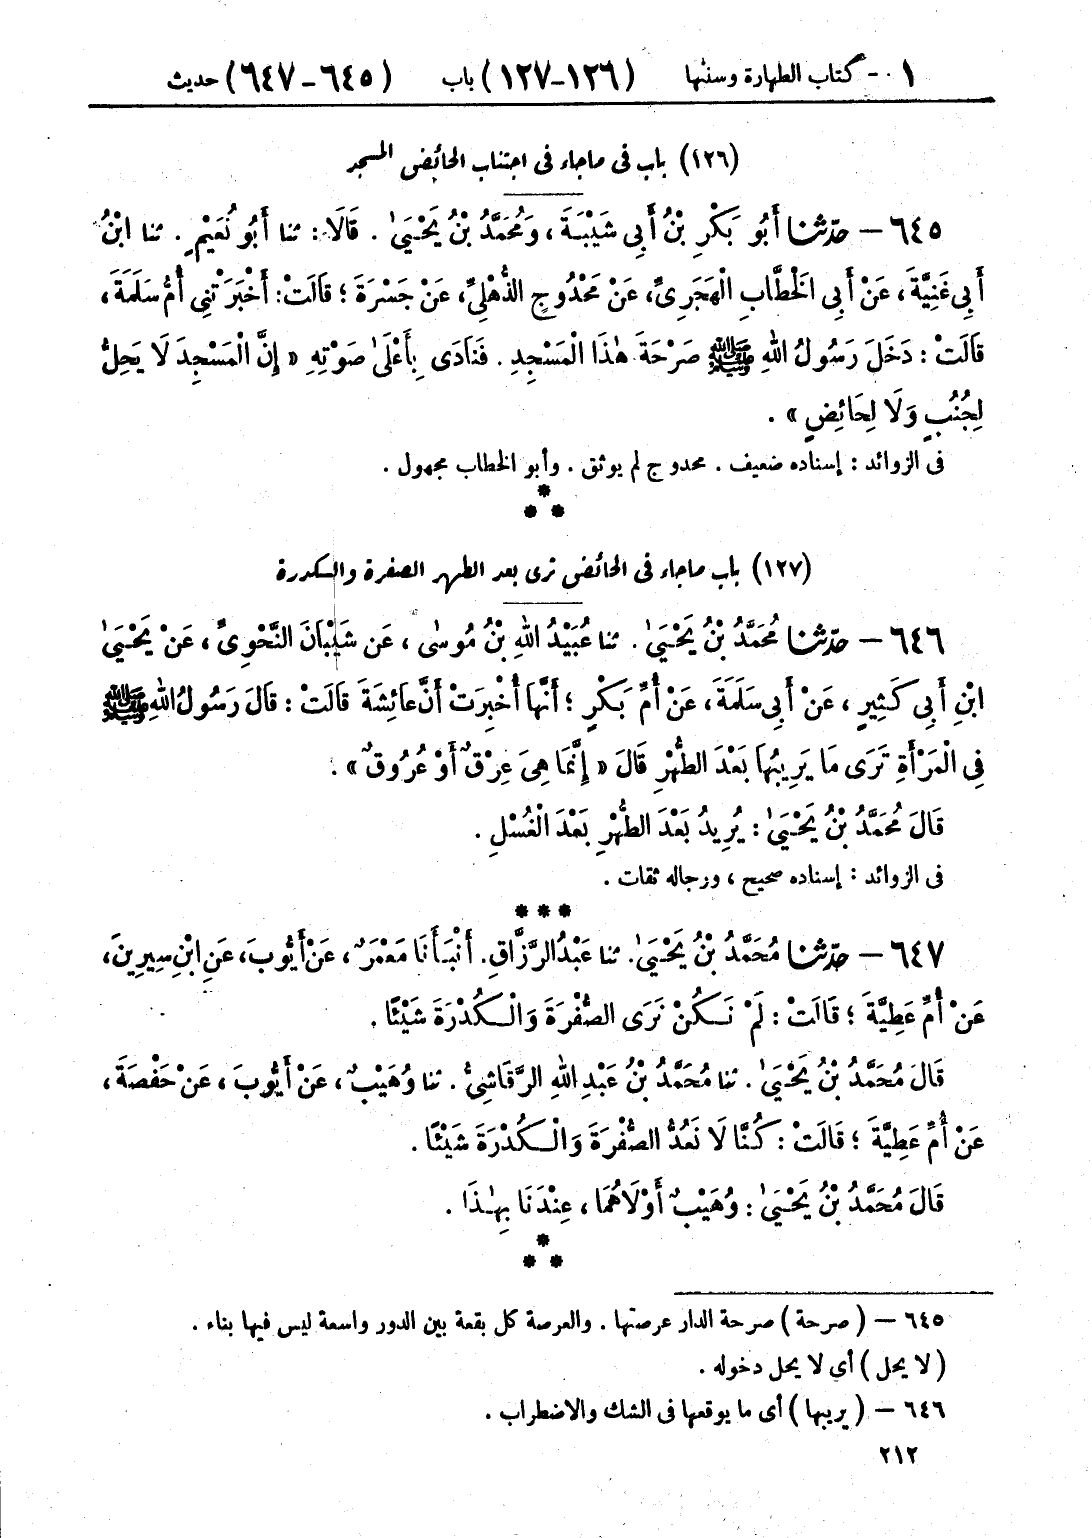 ١ - كتاب الطهارة وسننها (١٢٦-١٢٧) باب (٦٤٥-٦٤٧) حديث
(١٢٦) باب فى ماجاء فى اجتناب الحائض المسجد
٦٤٥ – حدّثنا أَبُو بَكْرِ بْنُ أَبِى شَيْبَةَ ، وَمُحَمَّدُ بْنُ يَحْيَىٰ . قَالَا : ثنا أَبُو نُعَيْمٍ . ثنا ابْنُ
أَبِى غَنِيَّةَ ، عَنْ أَبِى الْخَطَّابِ الْهَجَرِىِّ، عَنْ مَحْدُوجٍ الذُّهْلِىِّ، عَنْ جَسْرَةَ ؛ قَالَتْ: أَخْبَرَتْنِى أُمُّ سَلَمَةَ ،
قَالَتْ : دَخَلَ رَسُولُ اللهِ ﷺ صَرْحَةَ هٰذَا الْمَسْجِدِ . فَنَادَى بِأَعْلَىٰ صَوْتِهِ « إِنَّ الْمَسْجِدَ لَا يَحِلُّ
لِجُنُبٍ وَلَا لِحَائِضٍ » .
فى الزوائد : إسناده ضعيف . محدوج لم يوثق . وأبو الخطاب مجهول .
*
* *
(١٢٧) باب ماجاء فى الحائض ترى بعد الطهر الصفرة والكدرة
٦٤٦ – حدّثنا مُحَمَّدُ بْنُ يَحْيَىٰ . ثنا عُبَيْدُ اللهِ بْنُ مُوسٰى ، عَن شَيْبَانَ النَّحْوِىِّ ، عَنْ يَحْيَىٰ
ابْنِ أَبِى كَثِيرٍ ، عَنْ أَبِى سَلَمَةَ ، عَنْ أُمِّ بَكْرٍ ؛ أَنَّهَا أُخْبِرَتْ أَنَّ عَائِشَةَ قَالَتْ : قَالَ رَسُولُ اللهِ ﷺ
فِى الْمَرْأَةِ تَرَى مَا يَرِيبُهَا بَعْدَ الطُّهْرِ قَالَ « إِنَّمَا هِىَ عِرْقٌ أَوْ عُرُوقٌ » .
قَالَ مُحَمَّدُ بْنُ يَحْيَىٰ : يُرِيدُ بَعْدَ الطُّهْرِ بَعْدَ الْغُسْلِ .
فى الزوائد : إسناده صحيح ، ورجاله ثقات .
* * *
٦٤٧ – حدّثنا مُحَمَّدُ بْنُ يَحْيَىٰ. ثنا عَبْدُ الرَّزَّاقِ. أَنْبَأَنَا مَعْمَرٌ ، عَنْ أَيُّوبَ، عَنِ ابْنِ سِيرِينَ،
عَنْ أُمِّ عَطِيَّةَ ؛ قَالَتْ : لَمْ نَكُنْ نَرَى الصُّفْرَةَ وَالْكُدْرَةَ شَيْئًا .
قَالَ مُحَمَّدُ بْنُ يَحْيَىٰ . ثنا مُحَمَّدُ بْنُ عَبْدِ اللهِ الرَّقَاشِىُّ . ثنا وُهَيْبٌ ، عَنْ أَيُّوبَ ، عَنْ حَفْصَةَ ،
عَنْ أُمِّ عَطِيَّةَ ؛ قَالَتْ : كُنَّا لَا نَعُدُّ الصُّفْرَةَ وَالْكُدْرَةَ شَيْئًا .
قَالَ مُحَمَّدُ بْنُ يَحْيَىٰ : وُهَيْبٌ أَوْلَاهُمَا ، عِنْدَنَا بِهٰذَا .
*
* *
٦٤٥ – ( صرحة ) صرحة الدار عرصتها . والعرصة كل بقعة بين الدور واسعة ليس فيها بناء .
( لا يحل ) أى لا يحل دخوله .
٦٤٦ – ( يريبها ) أى ما يوقعها فى الشك والاضطراب .
٢١٢